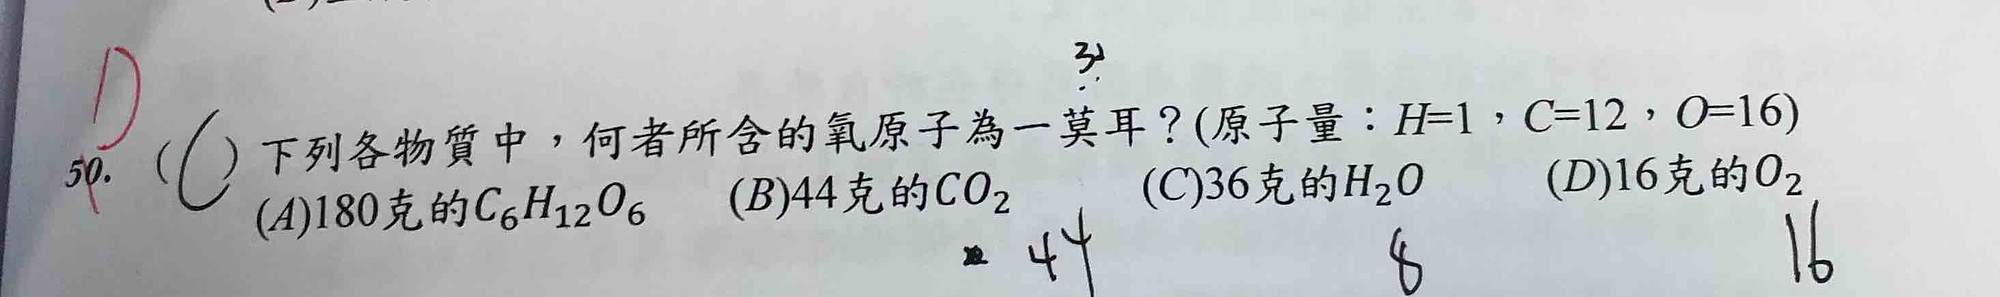 D
50. (C) 下列各物質中，何者所含的氧原子為一莫耳？(原子量：H=1，C=12，O=16)
(A)180克的C₆H₁₂O₆ (B)44克的CO₂ (C)36克的H₂O (D)16克的O₂
44 8 16